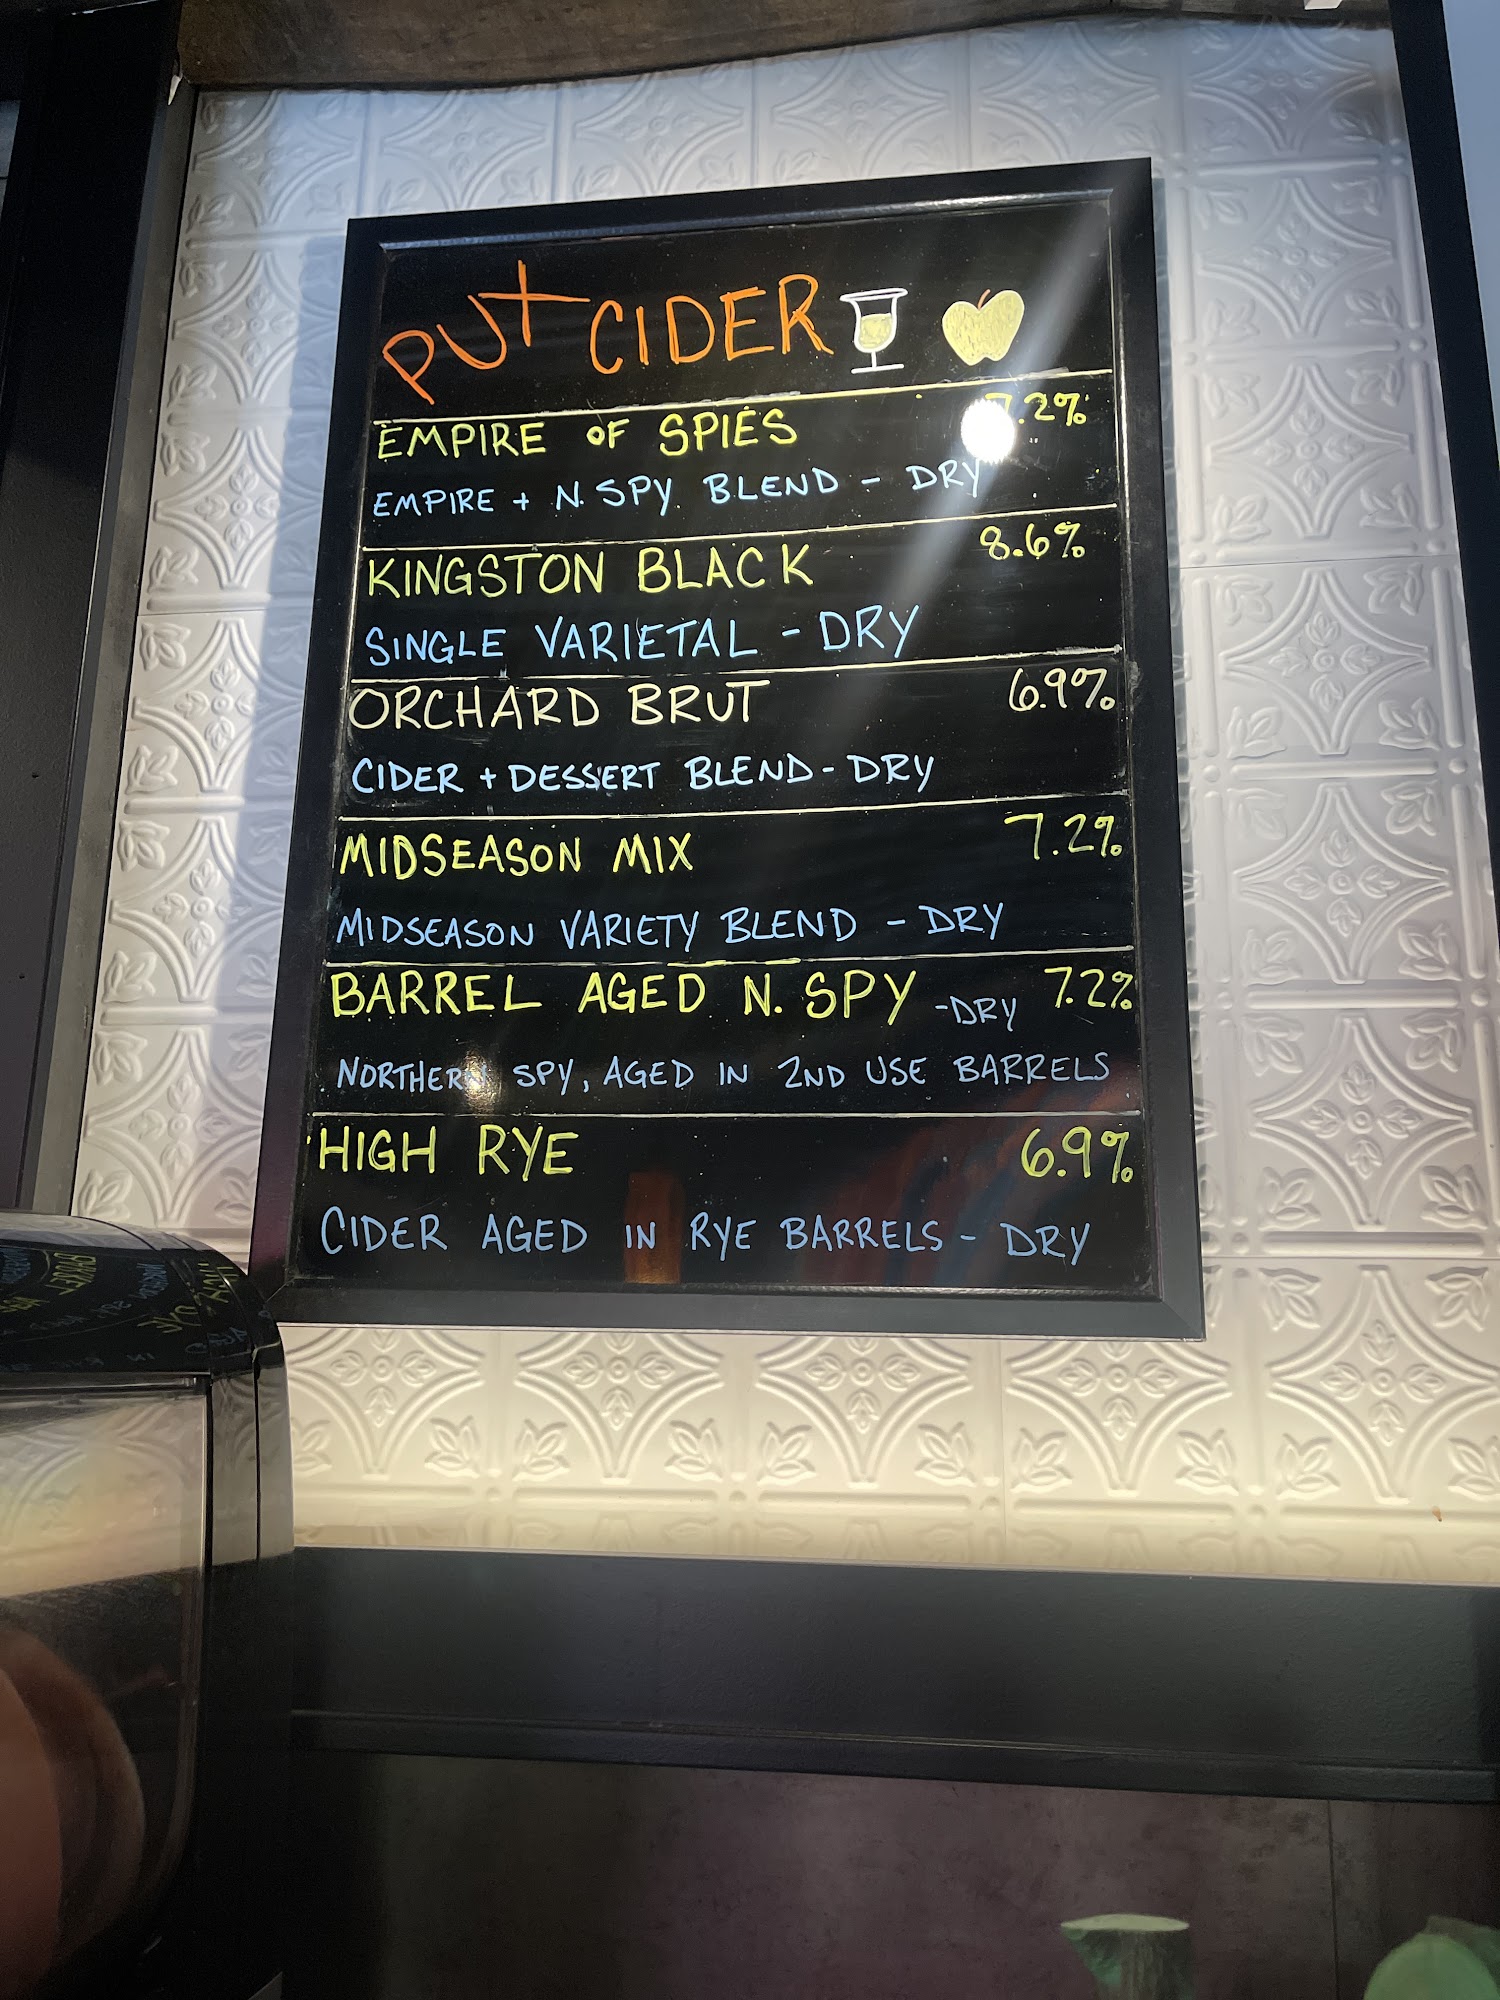 PUT CIDER
EMPIRE OF SPIES 7.2%
EMPIRE + N. SPY BLEND - DRY
KINGSTON BLACK 8.6%
SINGLE VARIETAL - DRY
ORCHARD BRUT 6.9%
CIDER + DESSERT BLEND - DRY
MIDSEASON MIX 7.2%
MIDSEASON VARIETY BLEND - DRY
BARREL AGED N. SPY - DRY 7.2%
NORTHERN SPY, AGED IN 2ND USE BARRELS
HIGH RYE 6.9%
CIDER AGED IN RYE BARRELS - DRY